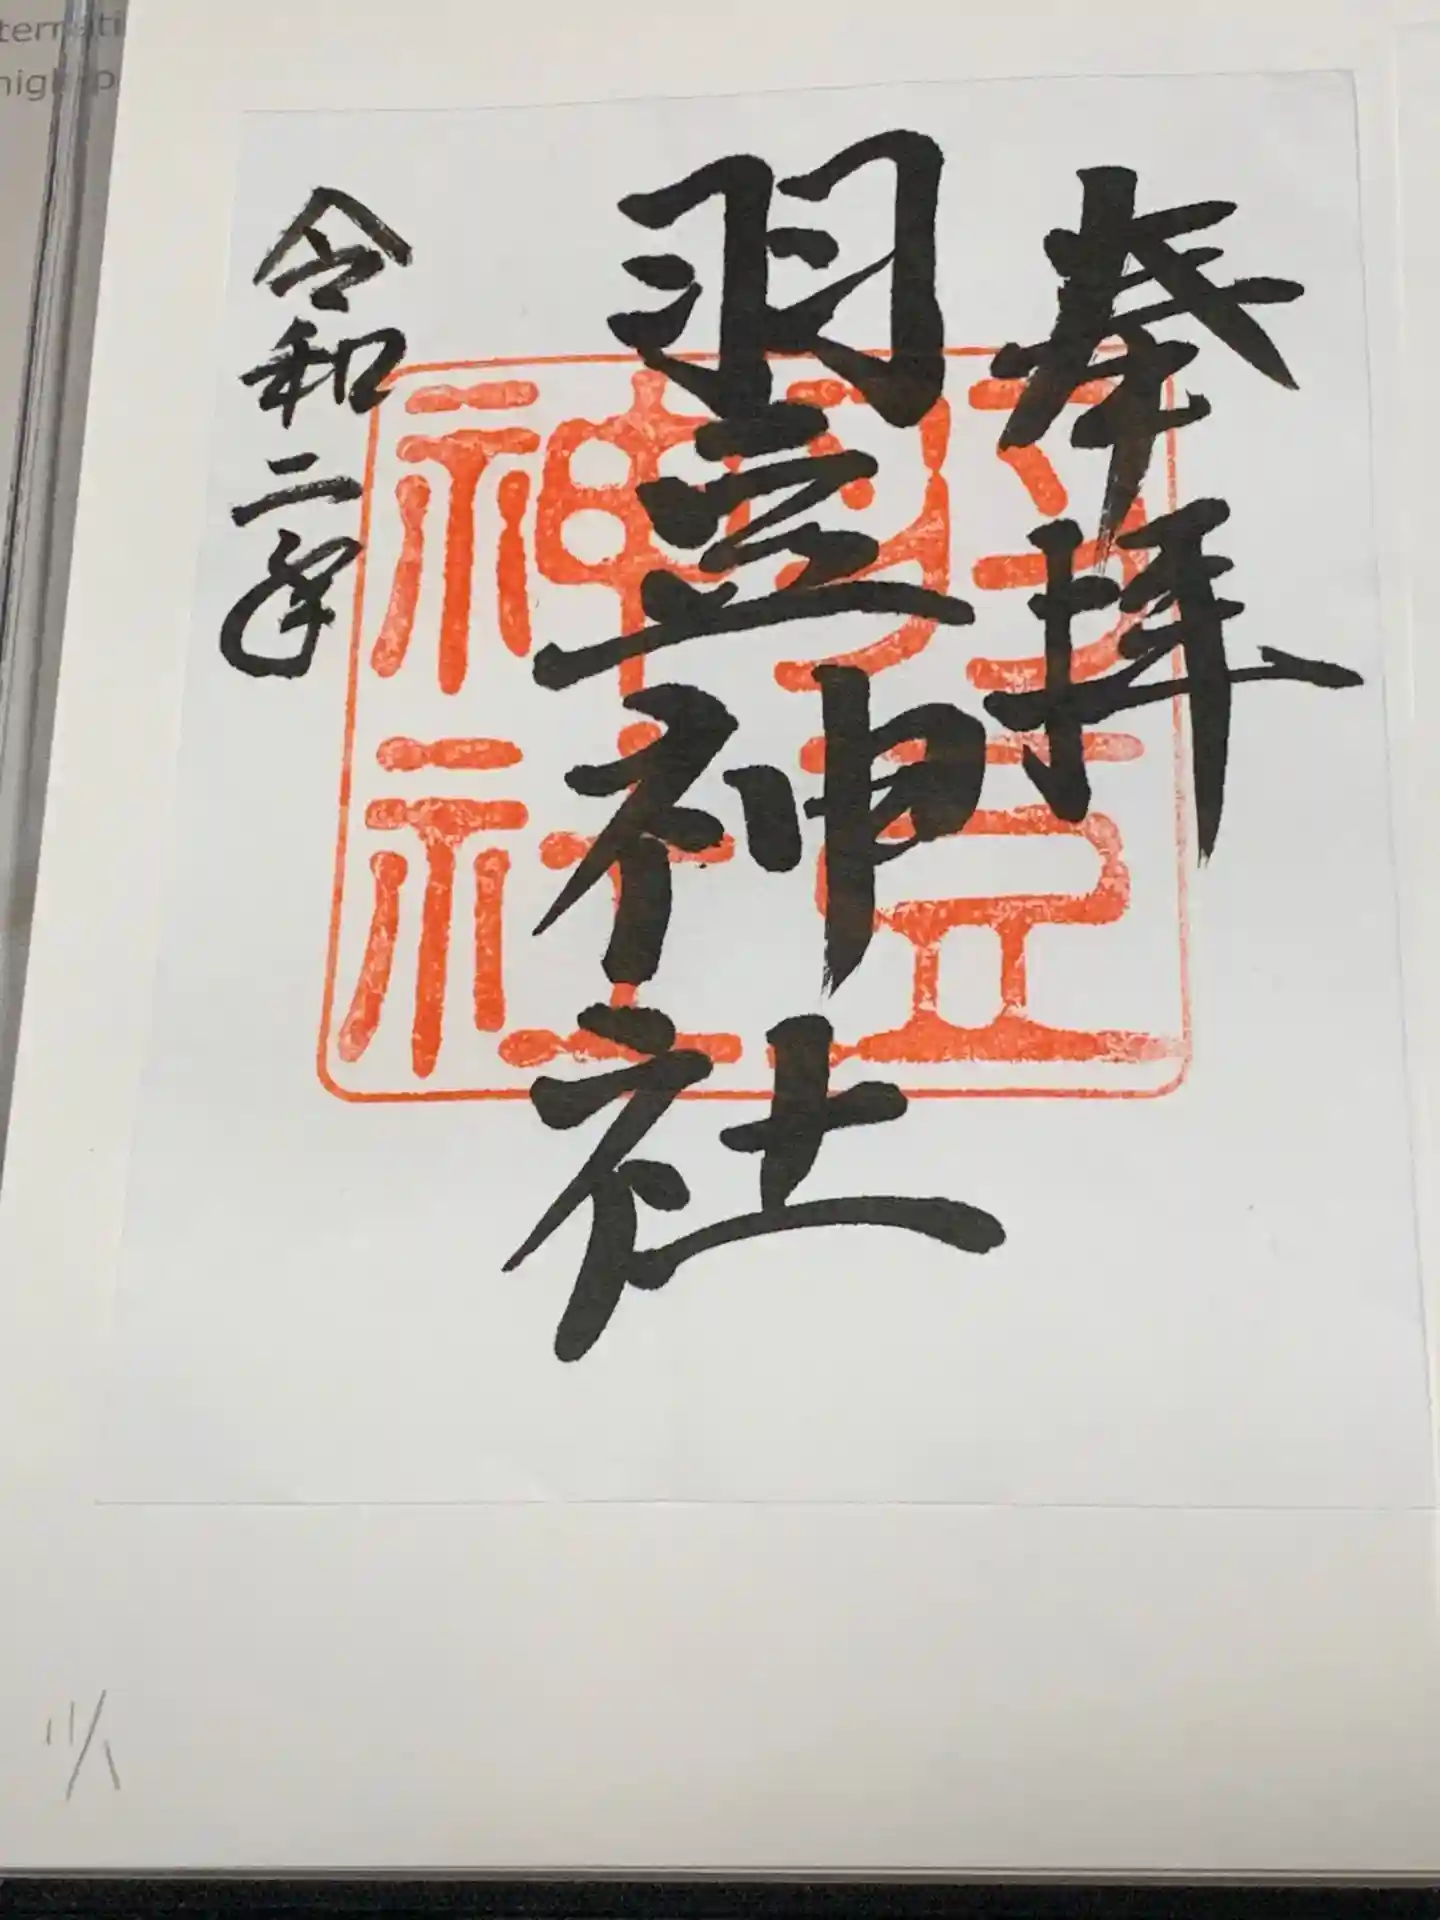 奉拝
羽豆神社
令和二年
羽豆
神社
11/1